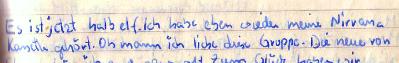 Es ist jetzt halb elf. Ich habe eben wieder meine Nirvana
Kassette gehört. Oh mann ich liebe diese Gruppe. Die neue von
zum Glück haben wir